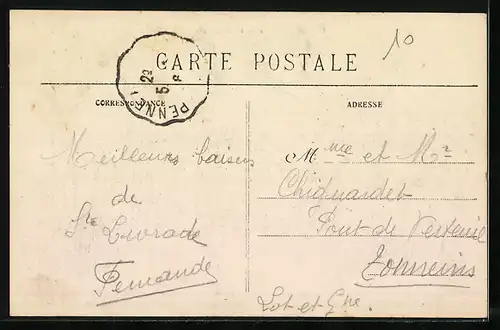 10
CARTE POSTALE
PENNE
29
5
CORRESPONDANCE
ADRESSE
Meilleurs baisers
de
Ste Livrade
Fernande
Mme et Mr
Pont de
Tonneins
Lot et Gne.